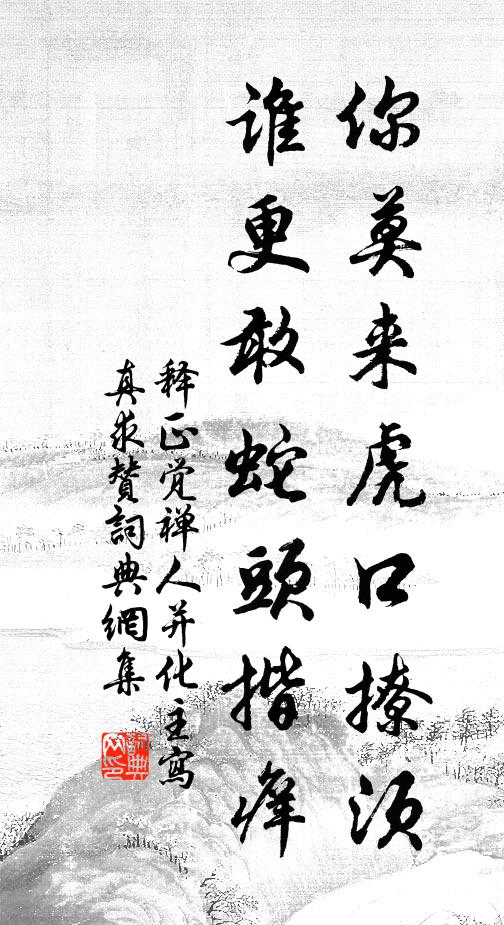 你莫来虎口撩须
谁更敢蛇頭揩痒
释正觉禅人并化主寫
真求賛詞典網集
詞典